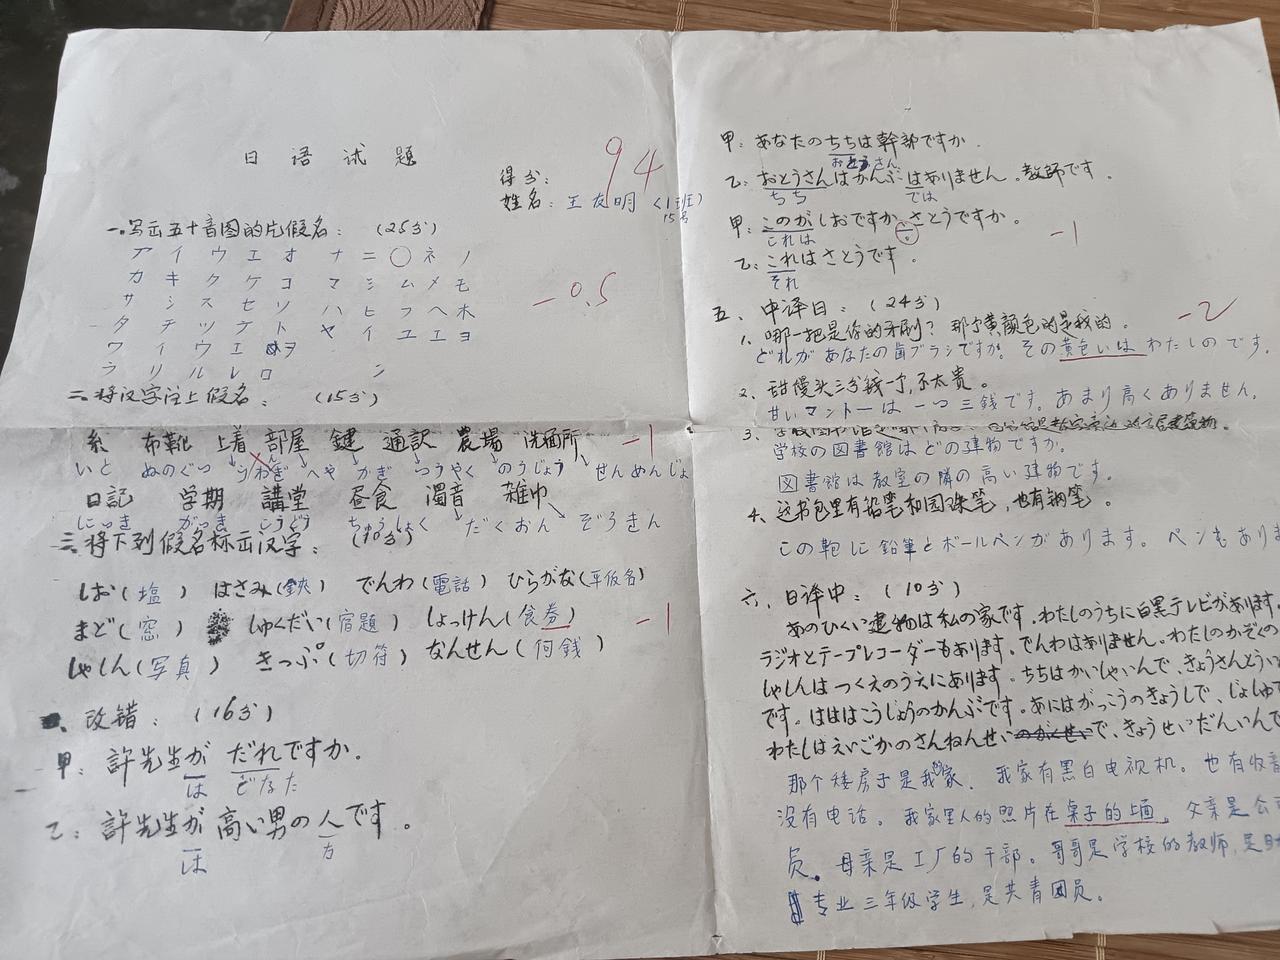 日语试题
94
得分:
姓名: 王友明 (1班)
15号
一。写出五十音图的片假名: (25分)
アイウエオ ナニ〇ネノ
カキクケコ マシムメモ
-0.5
サシスセソ ハヒフヘホ
タチツケト ヤイユエヨ
ワイウエヲ
ラリルレロ ン
二、将汉字注上假名: (15分)
糸 布靴 上着 部屋 鍵 通訳 農場 洗面所 -1
いと ぬのぐつ うわぎ へや かぎ つうやく のうじょう せんめんじょ
日記 学期 講堂 昼食 濁音 雑巾
にっき がっき こうどう ちゅうしょく だくおん ぞうきん
三、将下列假名标出汉字: (10分)
しお(塩) はさみ(鋏) でんわ(電話) ひらがな(平仮名)
まど(窓) しゅくだい(宿題) しょっけん(食券) -1
しゃしん(写真) きっぷ(切符) なんせん(何銭)
、改错: (16分)
甲: 許先生が だれですか.
は どなた
乙: 許先生が 高い男の人です。
は 方
甲: あなたのちちは幹部ですか.
おとうさん
乙: おとうさんはかんぶはありません。教師です。
ちち では
甲: このがしおですか さとうですか。
これは 。 -1
乙: これはさとうです。
それ
五、中译日: (24分) -2
1. 哪一把是你的牙刷? 那个黄颜色的是我的。
どれがあなたの歯ブラシですか。その黄色いはわたしのです。
2. 甜馒头三分钱一个,不太贵。
甘いマントーは一つ三銭です。あまり高くありません。
3.
学校の図書館はどの建物ですか。
図書館は教室の隣の高い建物です。
4. 这书包里有铅笔和园珠笔,也有钢笔。
この鞄に鉛筆とボールペンがあります。ペンもありま
六、日译中: (10分)
あのひくい建物は私の家です。わたしのうちに白黒テレビがあります。
ラジオとテープレコーダーもあります。でんわはありません。わたしのかぞくの
しゃしんはつくえのうえにあります。ちちはかいしゃいんで、きょうさんとうい
です。はははこうじょうのかんぶです。あにはがっこうのきょうしで、じょしゅで
わたしはえいごかのさんねんせいで、きょうせいだんいんで
那个矮房子是我家. 我家有黑白电视机。也有收音
没有电话。我家里人的照片在桌子的上面。父亲是公司
员。母亲是工厂的干部。哥哥是学校的教师,是助
专业三年级学生,是共青团员。